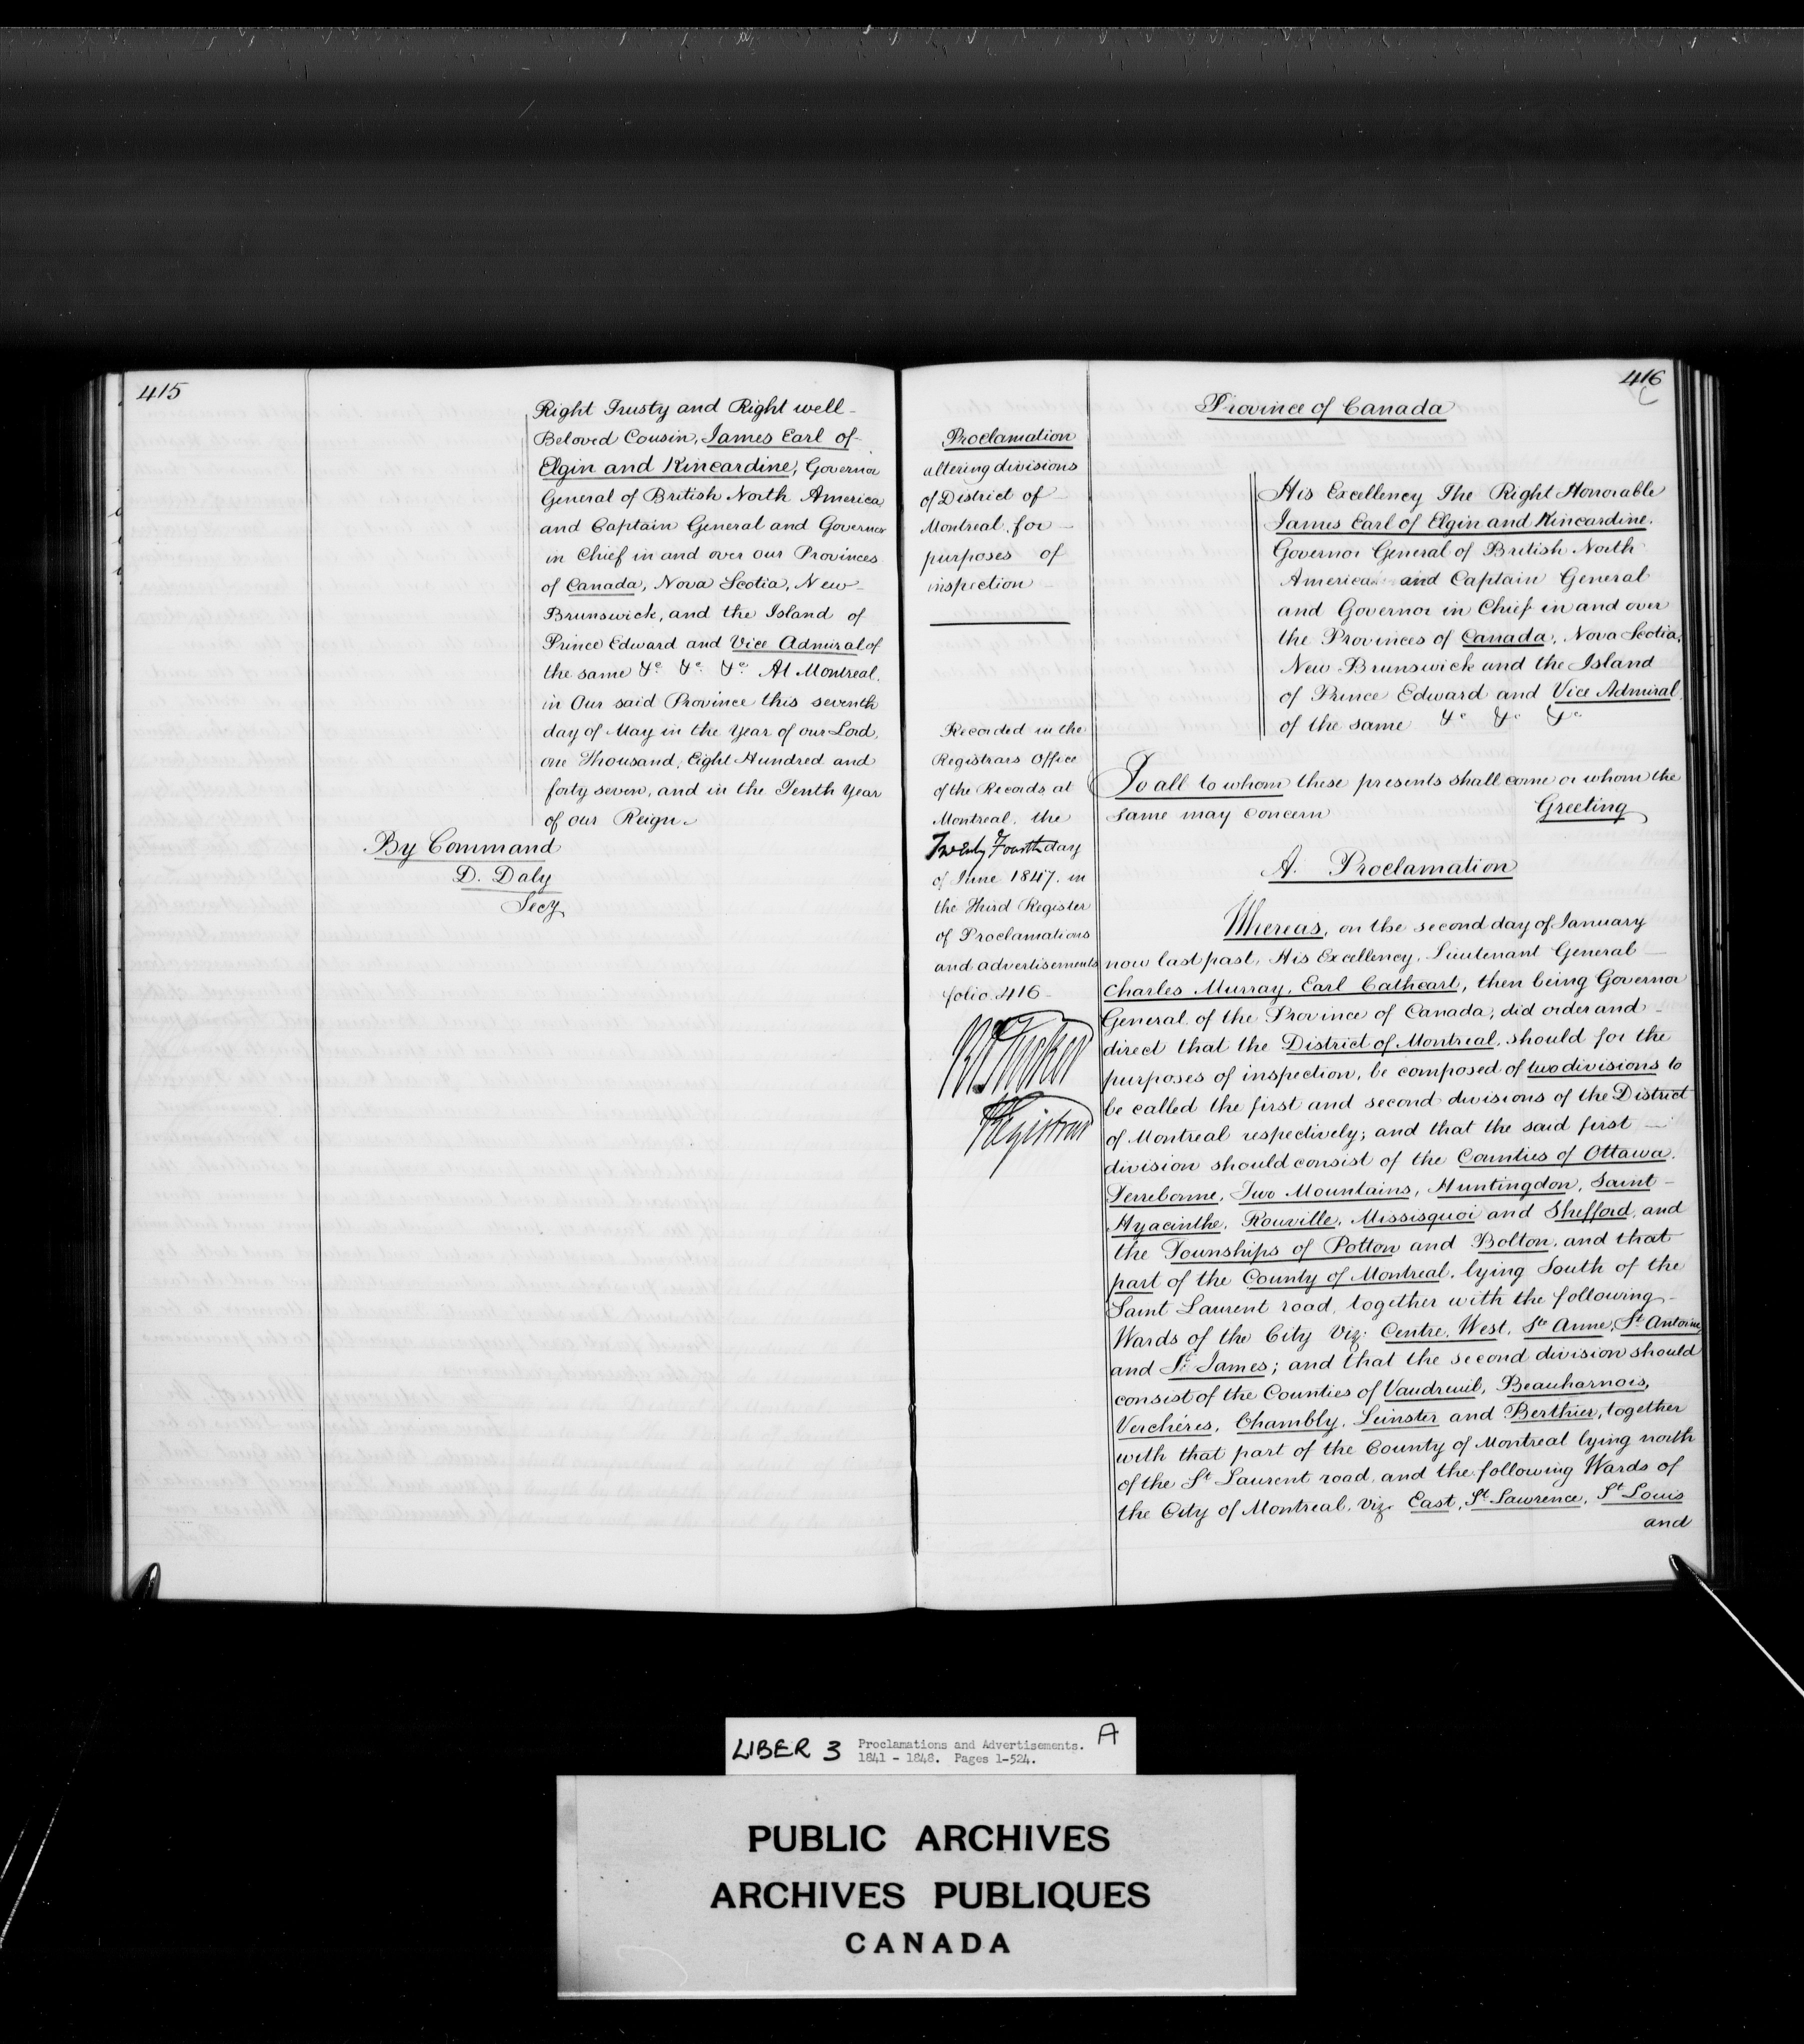 415
Right Trusty and Right well-
Beloved Cousin, James Earl of
Elgin and Kincardine, Governor
General of British North America
and Captain General and Governor
in Chief in and over our Provinces
of Canada, Nova Scotia, New
Brunswick, and the Island of
Prince Edward and Vice Admiral of
the same &c. &c. &c. At Montreal,
in Our said Province this seventh
day of May in the Year of our Lord,
one Thousand, Eight Hundred and
forty seven, and in the Tenth Year
of our Reign.
By Command
D. Daly
Secy
416
Proclamation
altering divisions
of District of
Montreal, for
purposes of
inspection
Recorded in the
Registrars Office
of the Records at
Montreal, the
Twenty Fourth day
of June 1847. in
the Third Register
of Proclamations
and advertisements
folio. 416
Registrar
Province of Canada
His Excellency The Right Honorable
James Earl of Elgin and Kincardine.
Governor General of British North
America and Captain General
and Governor in Chief in and over
the Provinces of Canada, Nova Scotia,
New Brunswick and the Island
of Prince Edward and Vice Admiral
of the same &c &c &c
To all to whom these presents shall come or whom the
same may concern Greeting
A. Proclamation
Whereas, on the second day of January
now last past, His Excellency, Lieutenant General
Charles Murray, Earl Cathcart, then being Governor
General of the Province of Canada, did order and
direct that the District of Montreal, should for the
purposes of inspection, be composed of two divisions to
be called the first and second divisions of the District
of Montreal respectively; and that the said first
division should consist of the Counties of Ottawa,
Terrebonne, Two Mountains, Huntingdon, Saint
Hyacinthe, Rouville, Missisquoi and Shefford, and
the Townships of Potton and Bolton, and that
part of the County of Montreal, lying South of the
Saint Laurent road, together with the following
Wards of the City Viz: Centre, West, Ste Anne, St Antoine,
and St James; and that the second division should
consist of the Counties of Vaudreuil, Beauharnois,
Verchéres, Chambly, Leinster and Berthier, together
with that part of the County of Montreal lying north
of the St Laurent road, and the following Wards of
the City of Montreal, Viz. East, St Lawrence, St Louis
and
LIBER 3 Proclamations and Advertisements. A
1841 - 1848. Pages 1-524.
PUBLIC ARCHIVES
ARCHIVES PUBLIQUES
CANADA